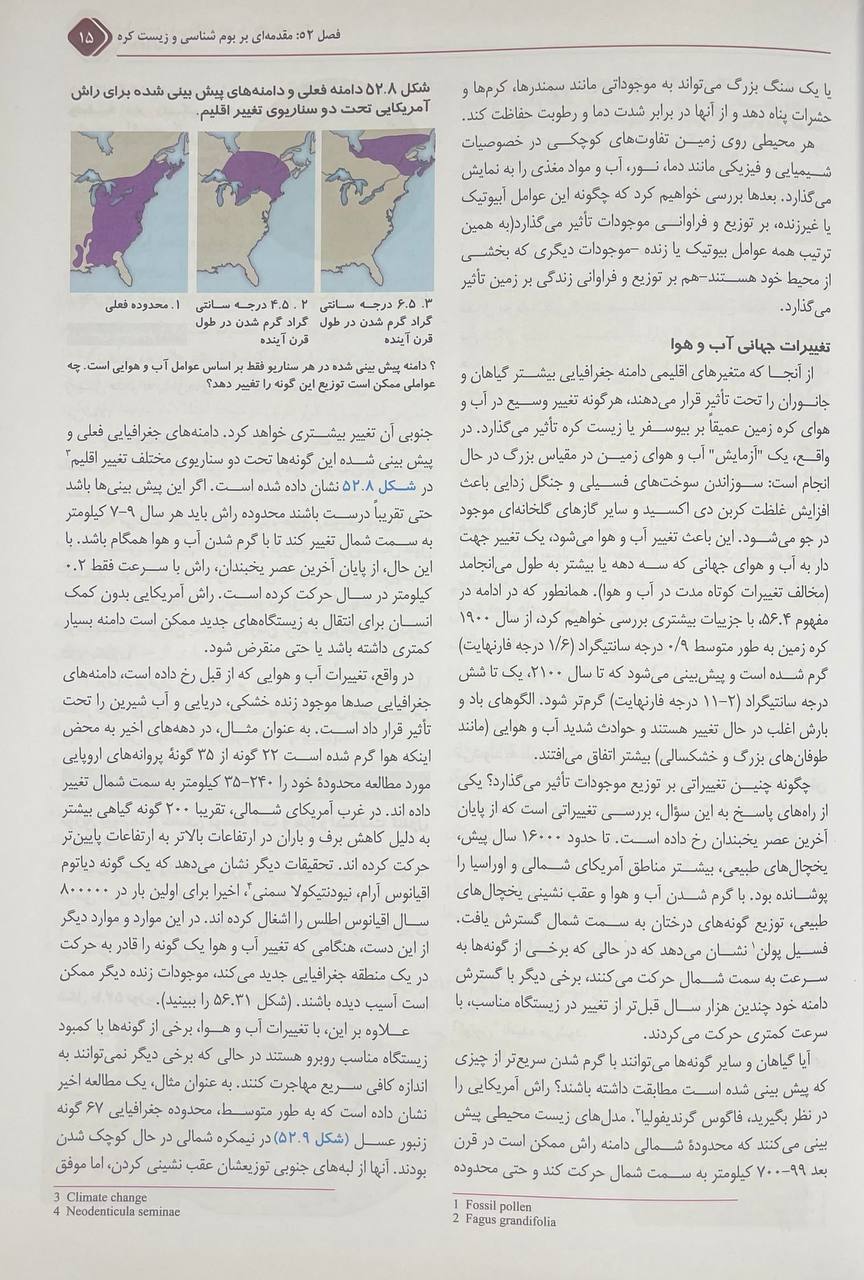 فصل ۵۲: مقدمه‌ای بر بوم شناسی و زیست کره
۱۵
یا یک سنگ بزرگ می‌تواند به موجوداتی مانند سمندرها، کرم‌ها و
حشرات پناه دهد و از آنها در برابر شدت دما و رطوبت حفاظت کند.
هر محیطی روی زمین تفاوت‌های کوچکی در خصوصیات
شیمیایی و فیزیکی مانند دما، نور، آب و مواد مغذی را به نمایش
می‌گذارد. بعدها بررسی خواهیم کرد که چگونه این عوامل آبیوتیک
یا غیرزنده، بر توزیع و فراوانی موجودات تأثیر می‌گذارد(به همین
ترتیب همه عوامل بیوتیک یا زنده -موجودات دیگری که بخشی
از محیط خود هستند-هم بر توزیع و فراوانی زندگی بر زمین تأثیر
می‌گذارد.
تغییرات جهانی آب و هوا
از آنجا که متغیرهای اقلیمی دامنه جغرافیایی بیشتر گیاهان و
جانوران را تحت تأثیر قرار می‌دهند، هرگونه تغییر وسیع در آب و
هوای کره زمین عمیقاً بر بیوسفر یا زیست کره تأثیر می‌گذارد. در
واقع، یک "آزمایش" آب و هوای زمین در مقیاس بزرگ در حال
انجام است: سوزاندن سوخت‌های فسیلی و جنگل زدایی باعث
افزایش غلظت کربن دی اکسید و سایر گازهای گلخانه‌ای موجود
در جو می‌شود. این باعث تغییر آب و هوا می‌شود، یک تغییر جهت
دار به آب و هوای جهانی که سه دهه یا بیشتر به طول می‌انجامد
(مخالف تغییرات کوتاه مدت در آب و هوا). همانطور که در ادامه در
مفهوم ۵۶.۴، با جزییات بیشتری بررسی خواهیم کرد، از سال ۱۹۰۰
کره زمین به طور متوسط ۰/۹ درجه سانتیگراد (۱/۶ درجه فارنهایت)
گرم شده است و پیش‌بینی می‌شود که تا سال ۲۱۰۰، یک تا شش
درجه سانتیگراد (۲-۱۱ درجه فارنهایت) گرم‌تر شود. الگوهای باد و
بارش اغلب در حال تغییر هستند و حوادث شدید آب و هوایی (مانند
طوفان‌های بزرگ و خشکسالی) بیشتر اتفاق می‌افتند.
چگونه چنین تغییراتی بر توزیع موجودات تأثیر می‌گذارد؟ یکی
از راه‌های پاسخ به این سؤال، بررسی تغییراتی است که از پایان
آخرین عصر یخبندان رخ داده است. تا حدود ۱۶۰۰۰ سال پیش،
یخچال‌های طبیعی، بیشتر مناطق آمریکای شمالی و اوراسیا را
پوشانده بود. با گرم شدن آب و هوا و عقب نشینی یخچال‌های
طبیعی، توزیع گونه‌های درختان به سمت شمال گسترش یافت.
فسیل پولن۱ نشان می‌دهد که در حالی که برخی از گونه‌ها به
سرعت به سمت شمال حرکت می‌کنند، برخی دیگر با گسترش
دامنه خود چندین هزار سال قبل‌تر از تغییر در زیستگاه مناسب، با
سرعت کمتری حرکت می‌کردند.
آیا گیاهان و سایر گونه‌ها می‌توانند با گرم شدن سریع‌تر از چیزی
که پیش بینی شده است مطابقت داشته باشند؟ راش آمریکایی را
در نظر بگیرید، فاگوس گرندیفولیا۲. مدل‌های زیست محیطی پیش
بینی می‌کنند که محدودهٔ شمالی دامنه راش ممکن است در قرن
بعد ۹۹-۷۰۰ کیلومتر به سمت شمال حرکت کند و حتی محدوده
1 Fossil pollen
2 Fagus grandifolia
شکل ۵۲.۸ دامنه فعلی و دامنه‌های پیش بینی شده برای راش
آمریکایی تحت دو سناریوی تغییر اقلیم.
۱. محدوده فعلی
۲ . ۴.۵ درجه سانتی
گراد گرم شدن در طول
قرن آینده
۳. ۶.۵ درجه سانتی
گراد گرم شدن در طول
قرن آینده
؟ دامنه پیش بینی شده در هر سناریو فقط بر اساس عوامل آب و هوایی است. چه
عواملی ممکن است توزیع این گونه را تغییر دهد؟
جنوبی آن تغییر بیشتری خواهد کرد. دامنه‌های جغرافیایی فعلی و
پیش بینی شده این گونه‌ها تحت دو سناریوی مختلف تغییر اقلیم۳
در شکل ۵۲.۸ نشان داده شده است. اگر این پیش بینی‌ها باشد
حتی تقریباً درست باشند محدوده راش باید هر سال ۹-۷ کیلومتر
به سمت شمال تغییر کند تا با گرم شدن آب و هوا همگام باشد. با
این حال، از پایان آخرین عصر یخبندان، راش با سرعت فقط ۰.۲
کیلومتر در سال حرکت کرده است. راش آمریکایی بدون کمک
انسان برای انتقال به زیستگاه‌های جدید ممکن است دامنه بسیار
کمتری داشته باشد یا حتی منقرض شود.
در واقع، تغییرات آب و هوایی که از قبل رخ داده است، دامنه‌های
جغرافیایی صدها موجود زنده خشکی، دریایی و آب شیرین را تحت
تأثیر قرار داد است. به عنوان مثال، در دهه‌های اخیر به محض
اینکه هوا گرم شده است ۲۲ گونه از ۳۵ گونهٔ پروانه‌های اروپایی
مورد مطالعه محدودهٔ خود را ۲۴۰-۳۵ کیلومتر به سمت شمال تغییر
داده اند. در غرب آمریکای شمالی، تقریبا ۲۰۰ گونه گیاهی بیشتر
به دلیل کاهش برف و باران در ارتفاعات بالاتر به ارتفاعات پایین‌تر
حرکت کرده اند. تحقیقات دیگر نشان می‌دهد که یک گونه دیاتوم
اقیانوس آرام، نیودنتیکولا سمنی۴، اخیرا برای اولین بار در ۸۰۰۰۰۰
سال اقیانوس اطلس را اشغال کرده اند. در این موارد و موارد دیگر
از این دست، هنگامی که تغییر آب و هوا یک گونه را قادر به حرکت
در یک منطقه جغرافیایی جدید می‌کند، موجودات زنده دیگر ممکن
است آسیب دیده باشند. (شکل ۵۶.۳۱ را ببینید).
علاوه بر این، با تغییرات آب و هوا، برخی از گونه‌ها با کمبود
زیستگاه مناسب روبرو هستند در حالی که برخی دیگر نمی‌توانند به
اندازه کافی سریع مهاجرت کنند. به عنوان مثال، یک مطالعه اخیر
نشان داده است که به طور متوسط، محدوده جغرافیایی ۶۷ گونه
زنبور عسل (شکل ۵۲.۹) در نیمکره شمالی در حال کوچک شدن
بودند. آنها از لبه‌های جنوبی توزیعشان عقب نشینی کردن، اما موفق
3 Climate change
4 Neodenticula seminae